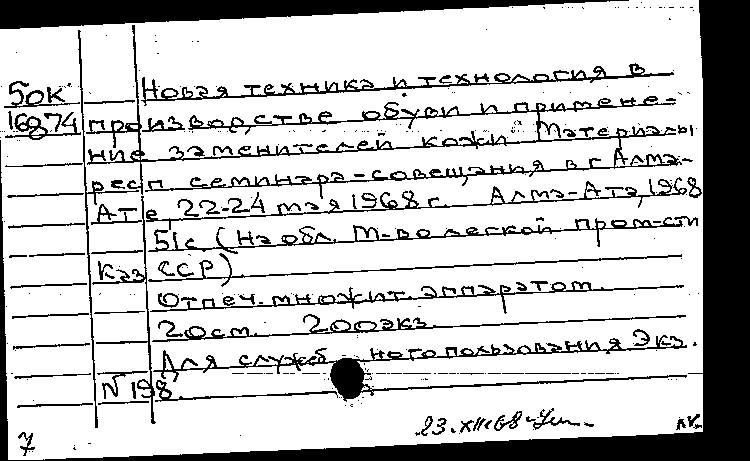 50К Новая техника и технология в
16874 производстве обуви и примене-
ние заменителей кожи. Материалы
респ семинара-совещания в г Алма-
Ате 22-24 мая 1968 г. Алма-Ата, 1968
51с. (На обл. М-во легкой пром-сти
Каз ССР).
Отпеч. множит. аппаратом.
20см. 200экз.
Для служебного пользования Экз.
N 198.
23.XII-68-
7